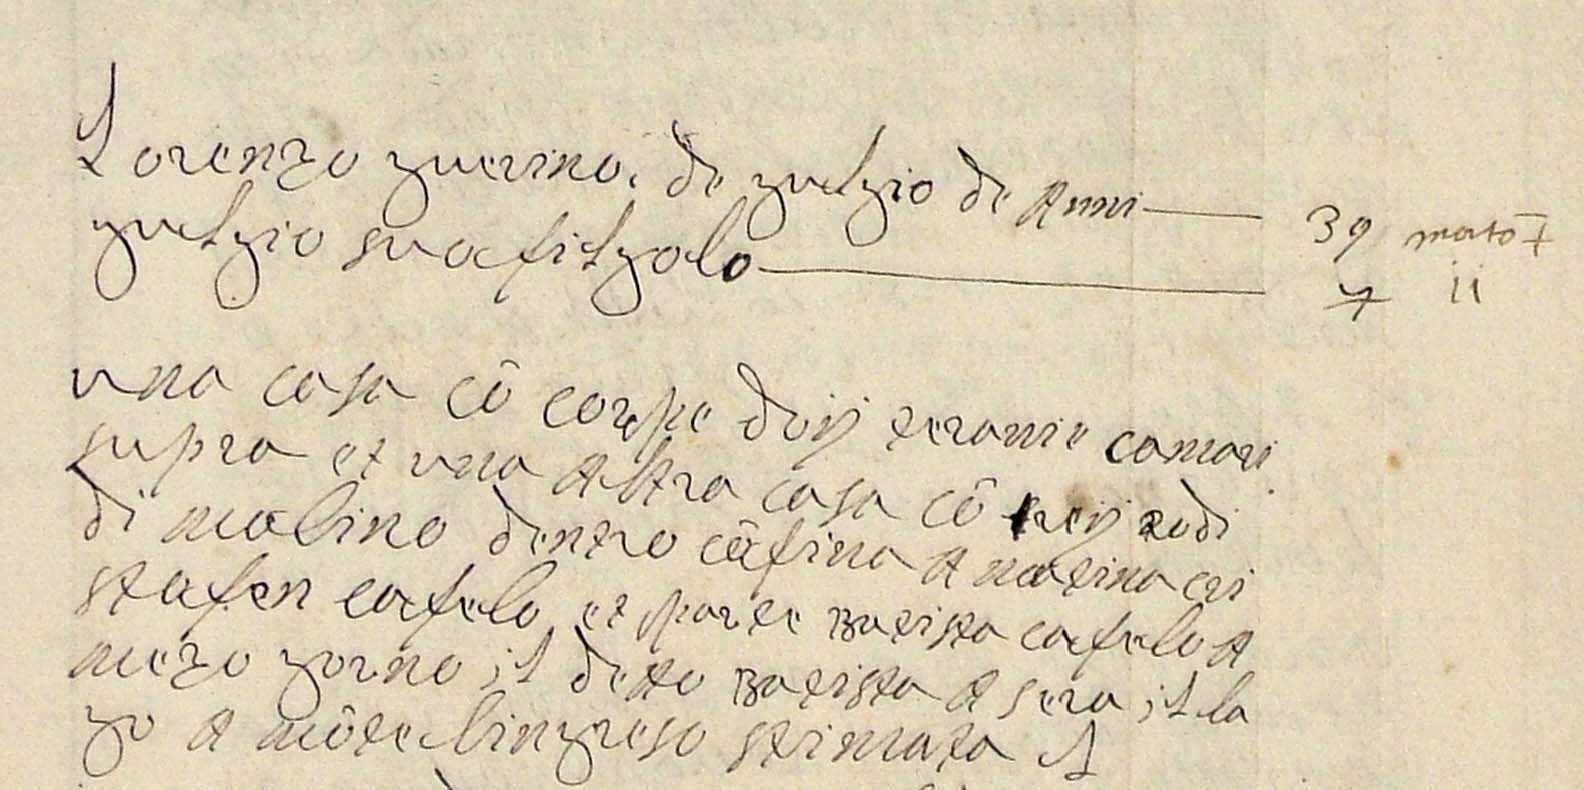 Lorenzo guerino. de gulgio de Anni — 39 morto +
gulgio sua filgolo — 7 ii
una casa cō corpe doij teranie camari
supra et una Altra casa cō treij rodi
di molino dentro cōfina A matina cri
stafen cafelo et parte Batista cafelo A
mezo zorno il deto Batista A sera il la
go A mōte lingreso stimata L